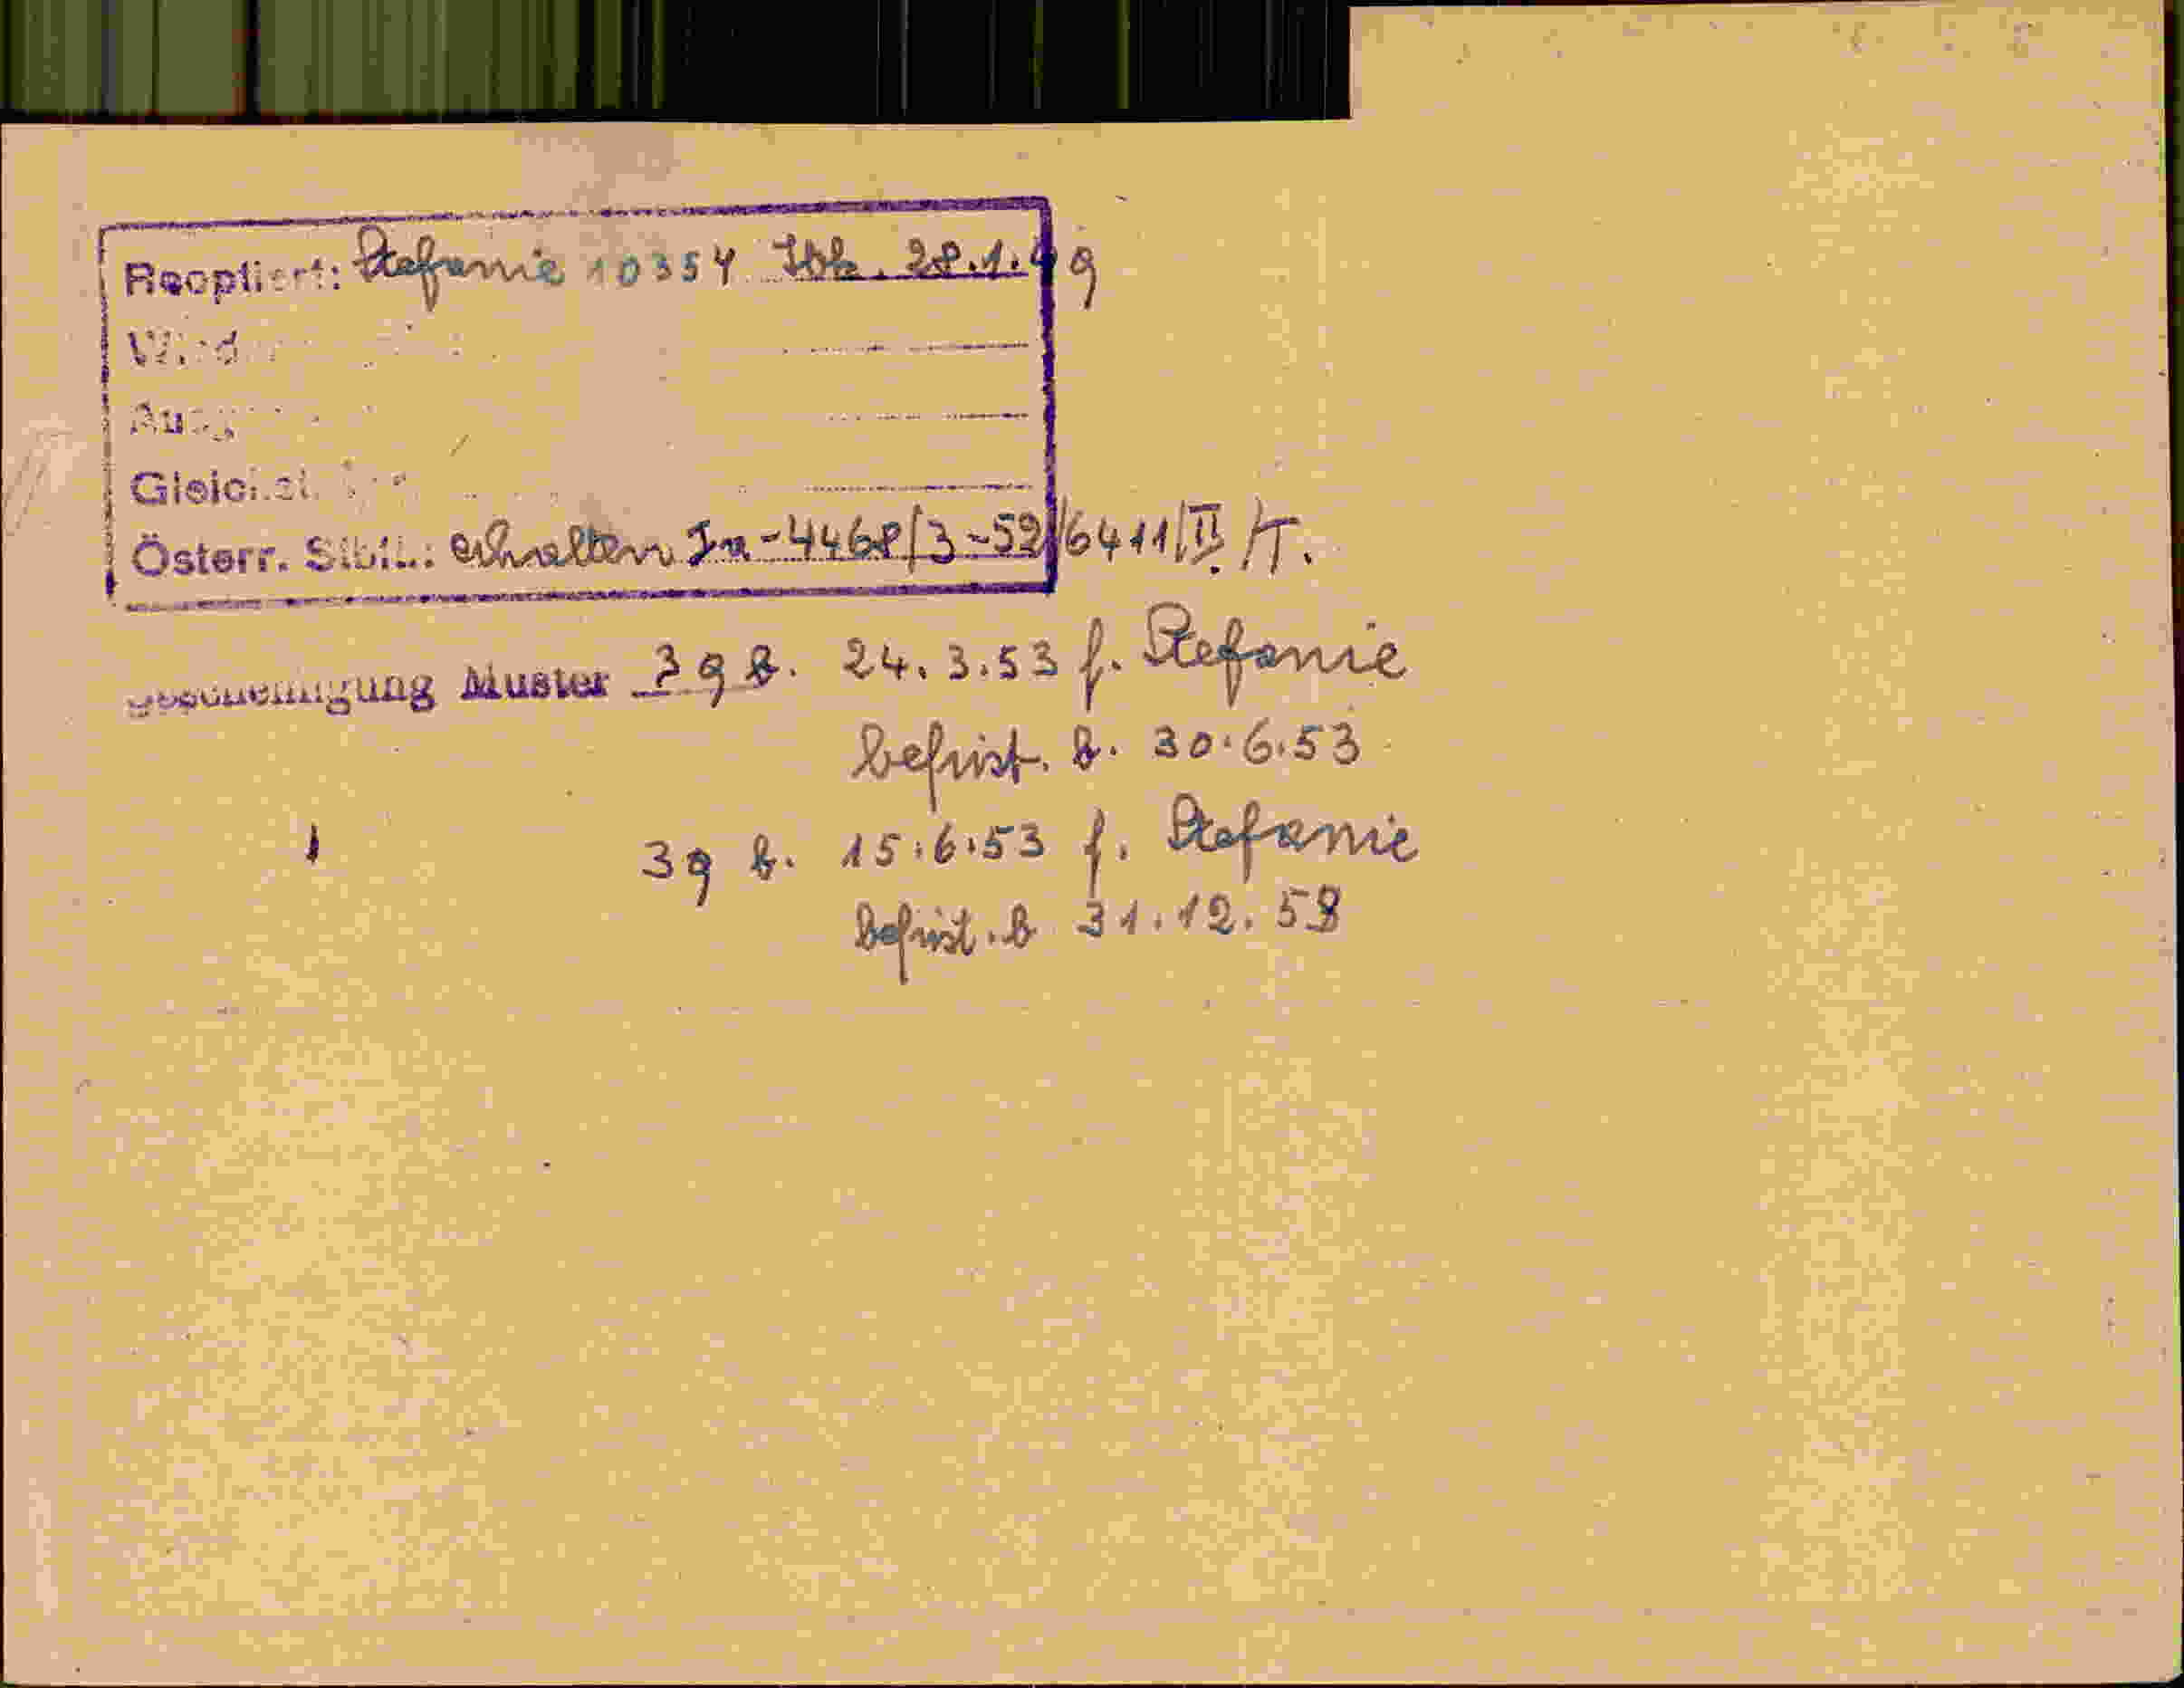 Reoptiert: Stefanie 10354 Ibk. 28.1.49
Österr. Stbü.: erhalten Ia-4468/3-52/6411/II/T.
Muster 39 b. 24.3.53 f. Stefanie
befrist. b. 30.6.53
39 b. 15.6.53 f. Stefanie
befrist. b 31.12.53